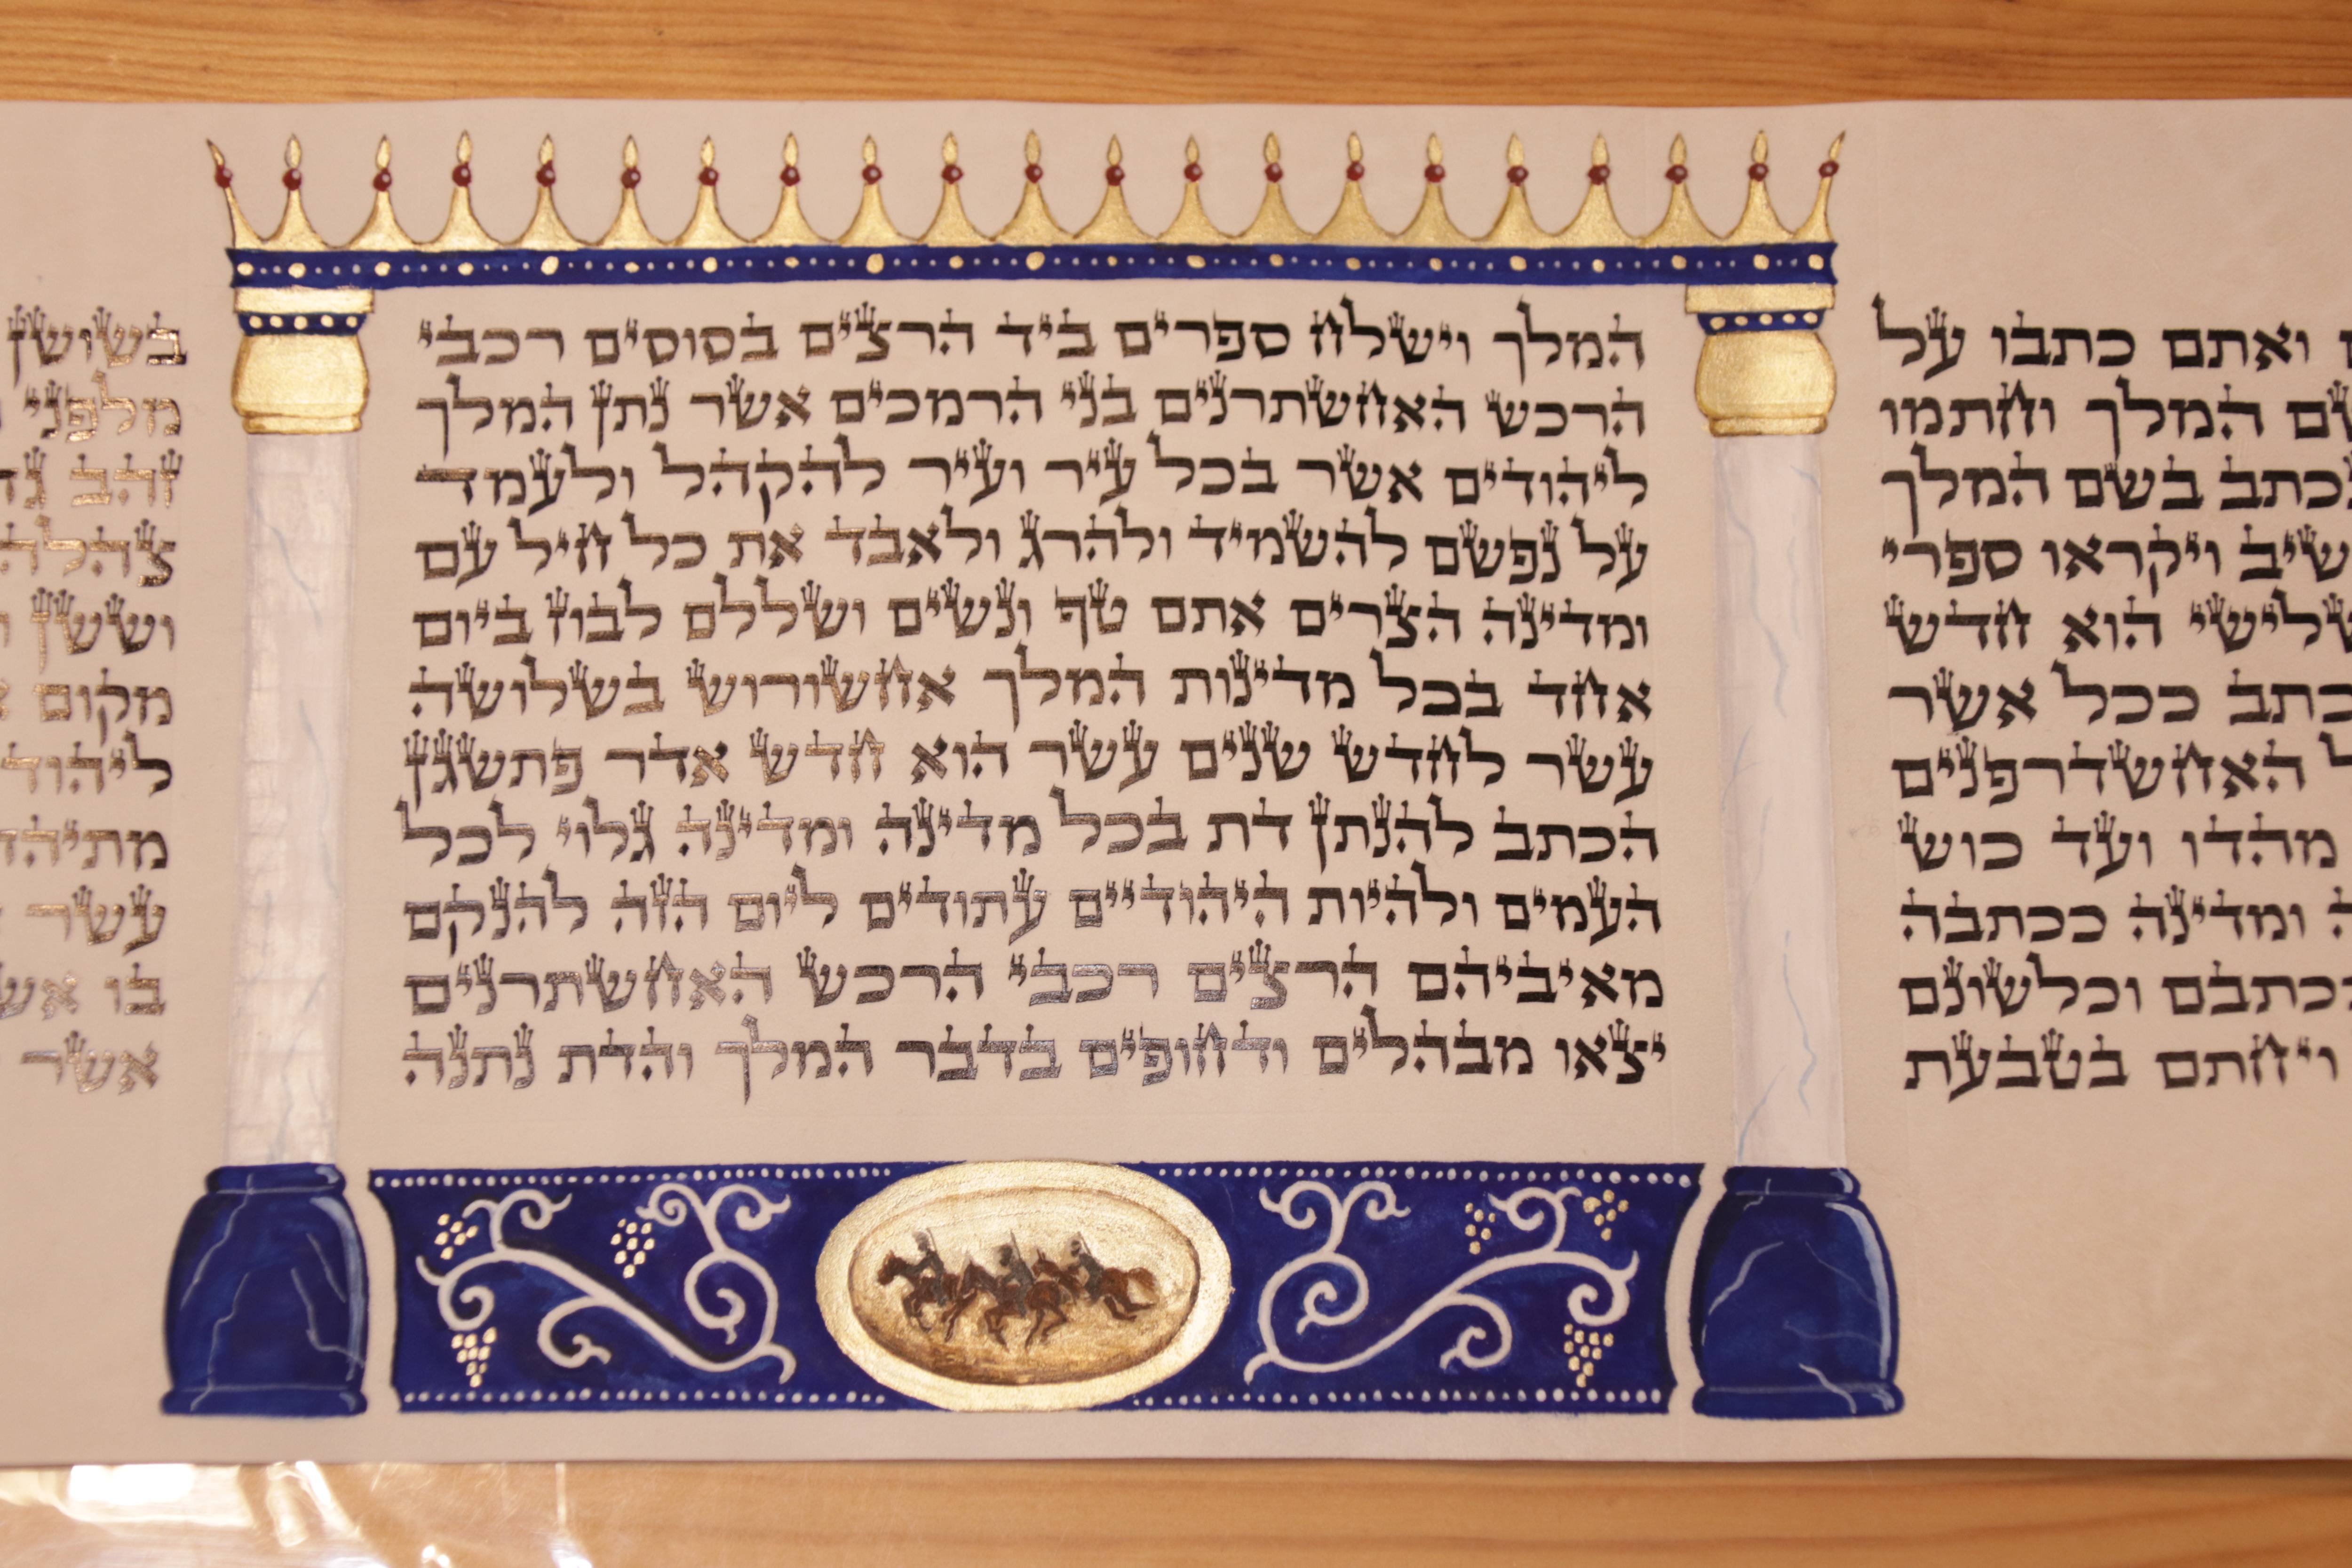 ואתם כתבו על
שם המלך וחתמו
נכתב בשם המלך
שיב ויקראו ספרי
שלישי הוא חדש
כתב ככל אשר
האחשדרפנים
מהדו ועד כוש
ומדינה ככתבה
ככתבם וכלשונם
ויחתם בטבעת
המלך וישלח ספרים ביד הרצים בסוסים רכבי
הרכש האחשתרנים בני הרמכים אשר נתן המלך
ליהודים אשר בכל עיר ועיר להקהל ולעמד
על נפשם להשמיד ולהרג ולאבד את כל חיל עם
ומדינה הצרים אתם טף ונשים ושללם לבוז ביום
אחד בכל מדינות המלך אחשורוש בשלושה
עשר לחדש שנים עשר הוא חדש אדר פתשגן
הכתב להנתן דת בכל מדינה ומדינה גלוי לכל
העמים ולהיות היהודיים עתודים ליום הזה להנקם
מאיביהם הרצים רכבי הרכש האחשתרנים
יצאו מבהלים ודחופים בדבר המלך והדת נתנה
בשושן
מלפני
זהב
צהלה
וששן
מקום
ליהוד
מתיהד
עשר
בו אש
אשר